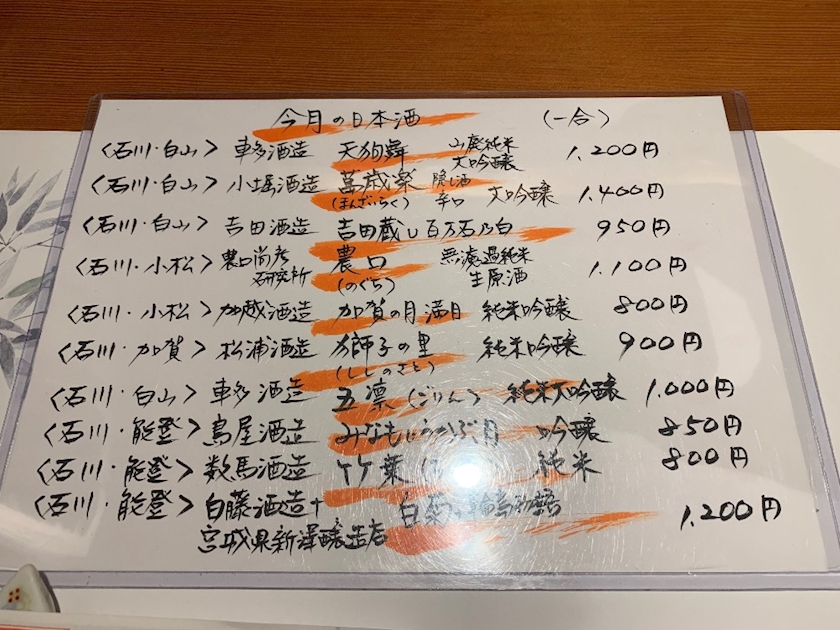 今月の日本酒 (一合)
〈石川・白山〉 車多酒造 天狗舞 山廃純米大吟醸 1,200円
〈石川・白山〉 小堀酒造 萬歳楽 (まんざいらく) 隠し酒 辛口 大吟醸 1,400円
〈石川・白山〉 吉田酒造 吉田蔵u 百万石乃白 950円
〈石川・小松〉 農口尚彦研究所 農口 (のぐち) 無濾過純米生原酒 1,100円
〈石川・小松〉 加越酒造 加賀の月 満月 純米吟醸 800円
〈石川・加賀〉 松浦酒造 獅子の里 (ししのさと) 純米吟醸 900円
〈石川・白山〉 車多酒造 五凛 (ごりん) 純米大吟醸 1,000円
〈石川・能登〉 鳥屋酒造 みなもにうかぶ月 吟醸 850円
〈石川・能登〉 数馬酒造 竹葉 純米 800円
〈石川・能登〉 白藤酒造+ 白菊 1,200円
宮城県新澤醸造店